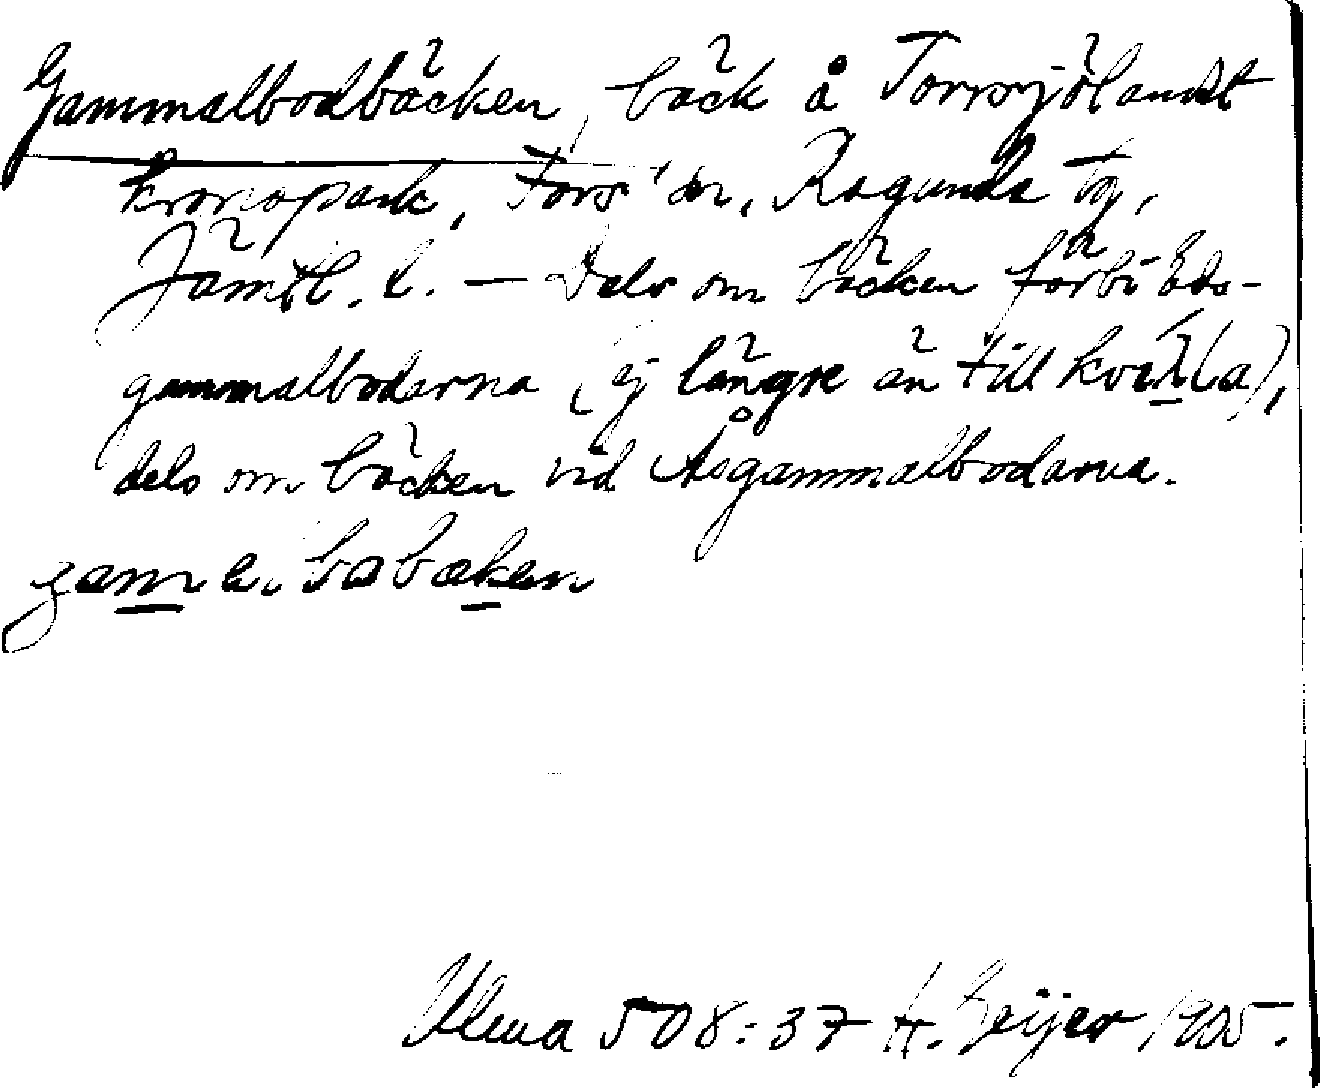 Gammalbodbäcken, bäck å Torrsjölandet
kronopark, Fors sn, Ragunda tg,
Jämtl. l. — Dels om bäcken förbi Eds-
gammalbodarna (ej längre än till
dels om bäcken vid Åsgammalbodarna.
Ulma 508:37 H. Geijer 1905.